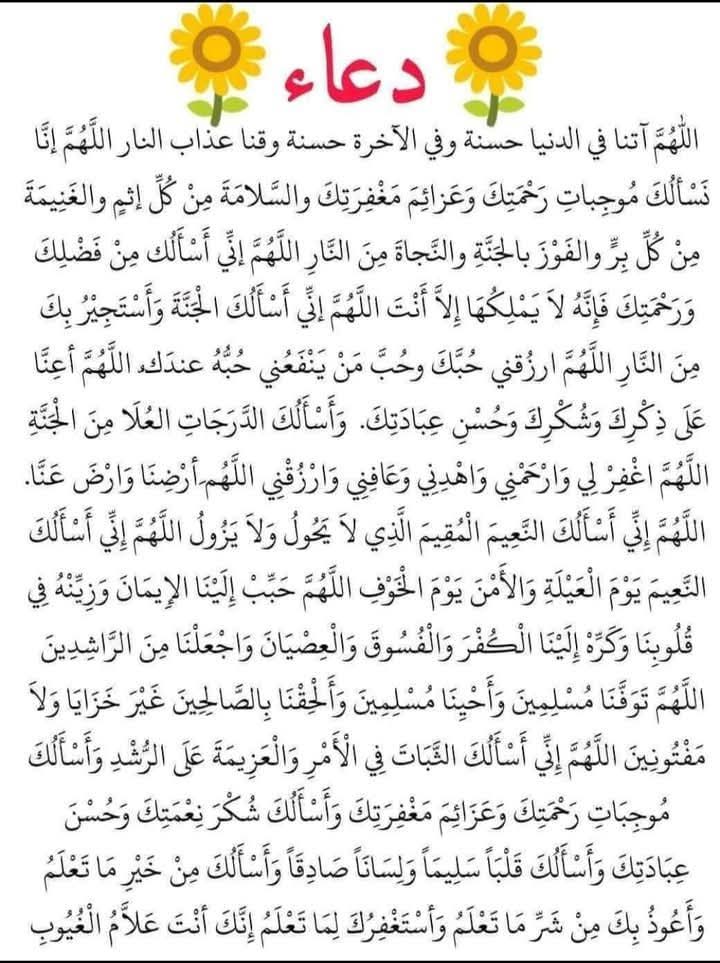 دعاء
اللهُمَّ آتنا في الدنيا حسنة وفي الآخرة حسنة وقنا عذاب النار اللَّهُمَّ إنَّا
نَسْألُكَ مُوجِباتِ رَحْمَتِكَ وَعَزائِمَ مَغْفِرَتِكَ والسَّلامَةَ مِنْ كُلِّ إثمٍ والغَنِيمَةَ
مِنْ كُلِّ بِرٍّ والفَوْزَ بالجَنَّةِ والنَّجاةَ مِنَ النَّارِ اللَّهُمَّ إنِّي أَسْأَلُك مِنْ فَضْلِكَ
وَرَحْمَتِكَ فَإِنَّهُ لاَ يَمْلِكُهَا إِلاَّ أَنْتَ اللَّهُمَّ إنِّي أَسْأَلُكَ الْجَنَّةَ وَأَسْتَجِيْرُ بِكَ
مِنَ النَّارِ اللَّهُمَّ ارزُقني حُبَّكَ وحُبَّ مَنْ يَنْفَعُني حبُّهُ عندَك، اللَّهُمَّ أعِنَّا
عَلَى ذِكْرِكَ وَشُكْرِكَ وَحُسْنِ عِبَادَتِكَ. وَأَسْأَلُكَ الدَّرَجَاتِ العُلَا مِنَ الْجَنَّةِ
اللَّهُمَّ اغْفِرْ لِي وَارْحَمْنِي وَاهْدِنِي وَعَافِنِي وَارْزُقْنِي اللَّهُم أَرْضِنَا وَارْضَ عَنَّا.
اللَّهُمَّ إِنِّي أَسْأَلُكَ النَّعِيمَ الْمُقِيمَ الَّذِي لاَ يَحُولُ وَلاَ يَزُولُ اللَّهُمَّ إِنِّي أَسْأَلُكَ
النَّعِيمَ يَوْمَ الْعَيْلَةِ وَالأَمْنَ يَوْمَ الْخَوْفِ اللَّهُمَّ حَبِّبْ إِلَيْنَا الإِيمَانَ وَزَيِّنْهُ فِي
قُلُوبِنَا وَكَرِّهْ إِلَيْنَا الْكُفْرَ وَالْفُسُوقَ وَالْعِصْيَانَ وَاجْعَلْنَا مِنَ الرَّاشِدِينَ
اللَّهُمَّ تَوَفَّنَا مُسْلِمِينَ وَأَحْيِنَا مُسْلِمِينَ وَأَلْحِقْنَا بِالصَّالِحِينَ غَيْرَ خَزَايَا وَلاَ
مَفْتُونِينَ اللَّهُمَّ إِنِّي أَسْأَلُكَ الثَّبَاتَ فِي الْأَمْرِ وَالْعَزِيمَةَ عَلَى الرُّشْدِ وَأَسْأَلُكَ
مُوجِبَاتِ رَحْمَتِكَ وَعَزَائِمَ مَغْفِرَتِكَ وَأَسْأَلُكَ شُكْرَ نِعْمَتِكَ وَحُسْنَ
عِبَادَتِكَ وَأَسْأَلُكَ قَلْبَاً سَلِيمَاً وَلِسَانَاً صَادِقَاً وَأَسْأَلُكَ مِنْ خَيْرِ مَا تَعْلَمُ
وَأَعُوذُ بِكَ مِنْ شَرِّ مَا تَعْلَمُ وَأسْتَغْفِرُكَ لِمَا تَعْلَمُ إِنَّكَ أَنْتَ عَلاَّمُ الْغُيُوبِ